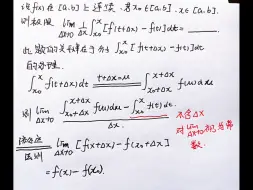 设f(x)在[a,b]上连续,若x₀∈[a,b], x∈[a,b].
则极限 lim_{Δx→0} 1/Δx ∫_{x₀}^{x} [f(t+Δx)-f(t)]dt = ____.
此题的关键在于 ∫_{x₀}^{x} [f(t+Δx)-f(t)]dt
的处理.
∫_{x₀}^{x} f(t+Δx)dt t+Δx=u ∫_{x₀+Δx}^{x+Δx} f(u)du
则 lim_{Δx→0} (∫_{x₀+Δx}^{x+Δx} f(u)du - ∫_{x₀}^{x} f(t)dt) / Δx
不含Δx
对 lim_{Δx→0} 为常
数.
洛必达 法则 lim_{Δx→0} [f(x+Δx) - f(x₀+Δx)]
= f(x) - f(x₀).